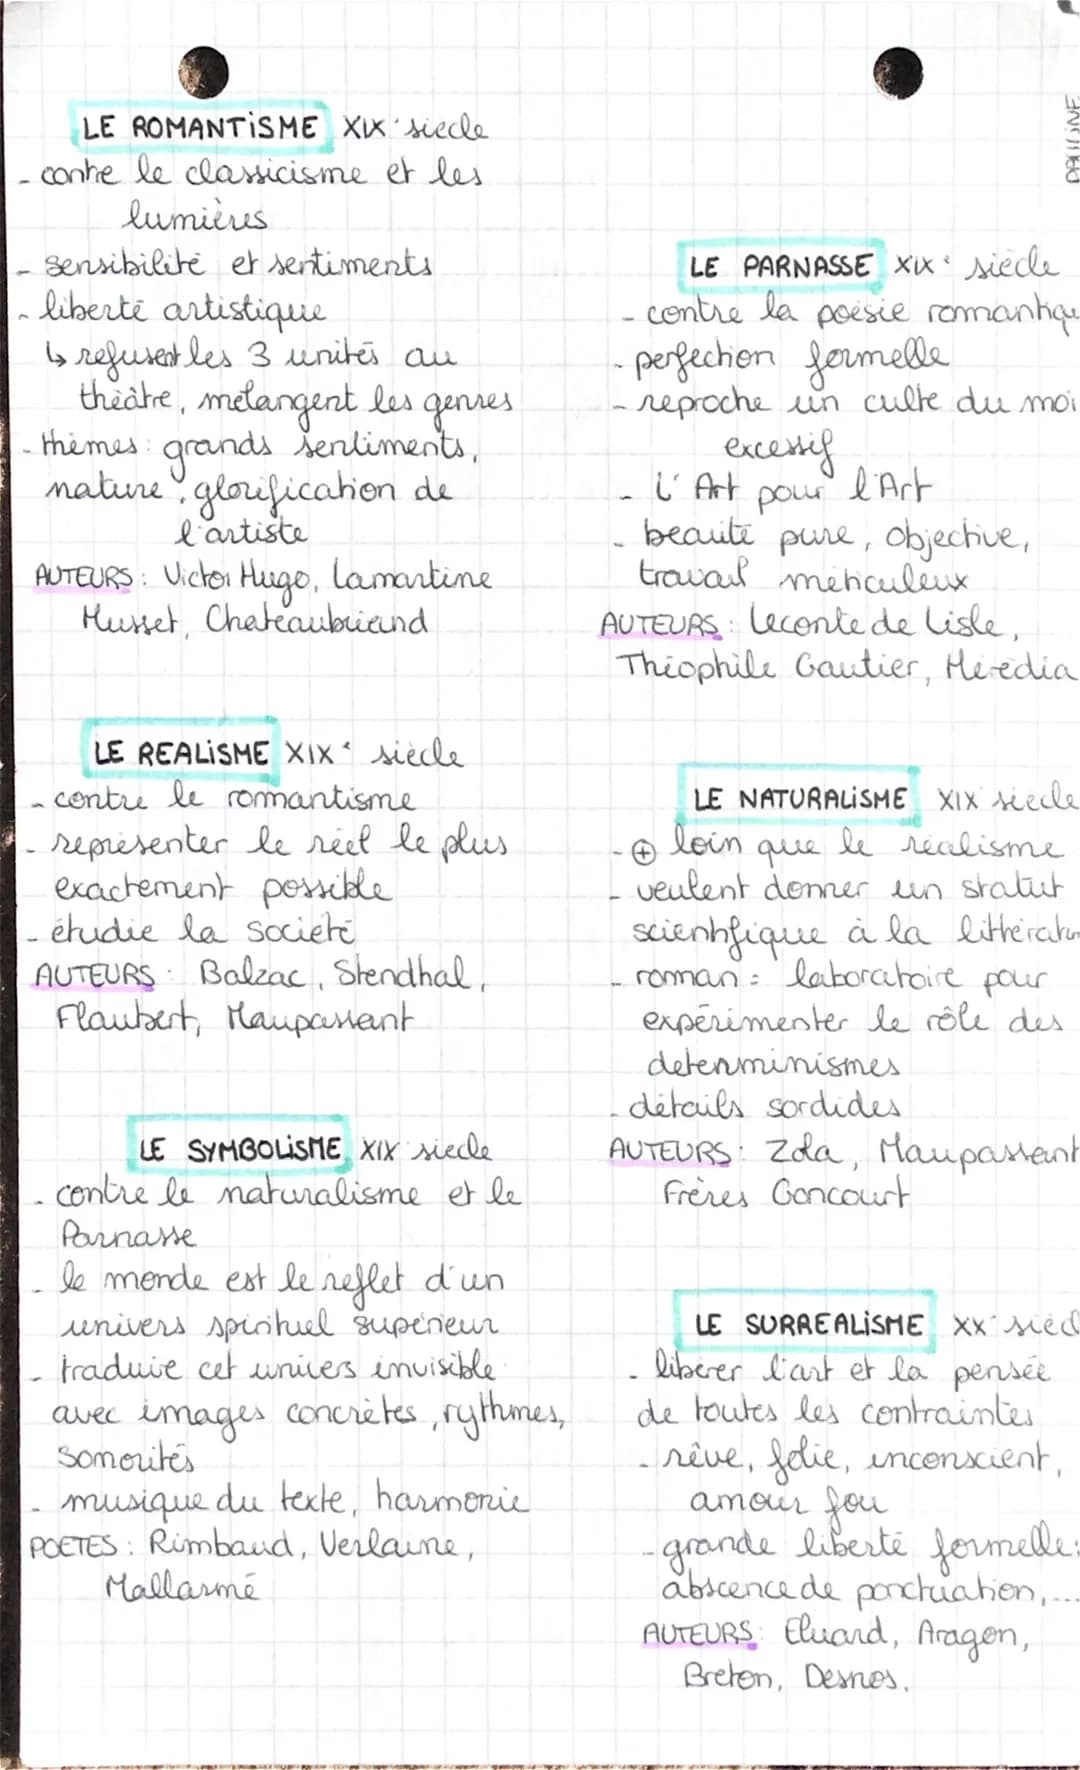 LE ROMANTISME XIXe siècle
- contre le classicisme et les
lumières
- sensibilité et sentiments
- liberté artistique
↳ refusent les 3 unités au
théâtre, mélangent les genres
- thèmes : grands sentiments,
nature, glorification de
l'artiste
AUTEURS : Victor Hugo, Lamartine
Musset, Chateaubriand
LE REALISME XIXe siècle
- contre le romantisme
- représenter le réel le plus
exactement possible
- étudie la société
AUTEURS : Balzac, Stendhal,
Flaubert, Maupassant
LE SYMBOLISME XIXe siècle
- contre le naturalisme et le
Parnasse
- le monde est le reflet d'un
univers spirituel supérieur
- traduire cet univers invisible
avec images concrètes, rythmes,
sonorités
- musique du texte, harmonie
POETES : Rimbaud, Verlaine,
Mallarmé
PAULINE
LE PARNASSE XIXe siècle
- contre la poésie romantique
- perfection formelle
- reproche un culte du moi
excessif
- L'Art pour l'Art
- beauté pure, objective,
travail méticuleux
AUTEURS : Leconte de Lisle,
Théophile Gautier, Hérédia
LE NATURALISME XIXe siècle
- ⊕ loin que le réalisme
- veulent donner un statut
scientifique à la littératur
- roman = laboratoire pour
expérimenter le rôle des
determinismes
- détails sordides
AUTEURS : Zola, Maupassant
Frères Goncourt
LE SURREALISME XXe siècl
- libérer l'art et la pensée
de toutes les contraintes
- rêve, folie, inconscient,
amour fou
- grande liberté formelle :
abscence de ponctuation,...
AUTEURS : Eluard, Aragon,
Breton, Desnos.